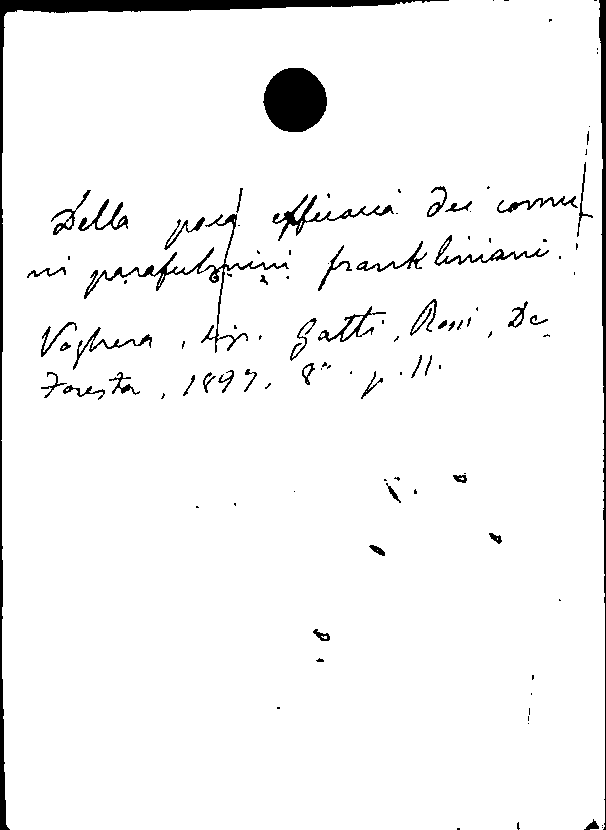 Della poca efficacia dei comu-
ni parafulmini frankliniani.
Voghera, tip. Gatti, Rossi, De
Foresta, 1897, 8° p. 11.